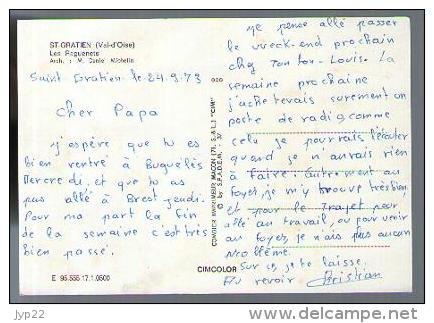 ST-GRATIEN (Val-d'Oise)
Les Raguenets
Arch. : M. Daniel Michelin
Saint Gratien le 24.9.73
Cher Papa
j'espère que tu es
bien rentré à Buguelès
Mercredi. et que tu as
pas allé à Brest jeudi.
Pour ma part la fin
de la semaine c'est très
bien passé.
E 95.555.17.1.0500
COMBIER IMPRIMEUR MACON (71. S.-&-L.) "CIM"
© by S.P.A.D.E.M.
CIMCOLOR
je pense allé passer
le week-end prochain
chez Tonton-Louis. La
semaine prochaine
j'achèterais surement un
poste de radio, comme
celu je pourrais l'écouter
quand je n'aurais rien
à faire. Autrement au
foyer, je m'y trouve très bien
et pour le trajet pour
allé au travail, ou pour venir
au foyer, je n'ais pas aucun
problème.
Sur ce, je te laisse.
Au revoir Christian
jyp22
delcampe.net